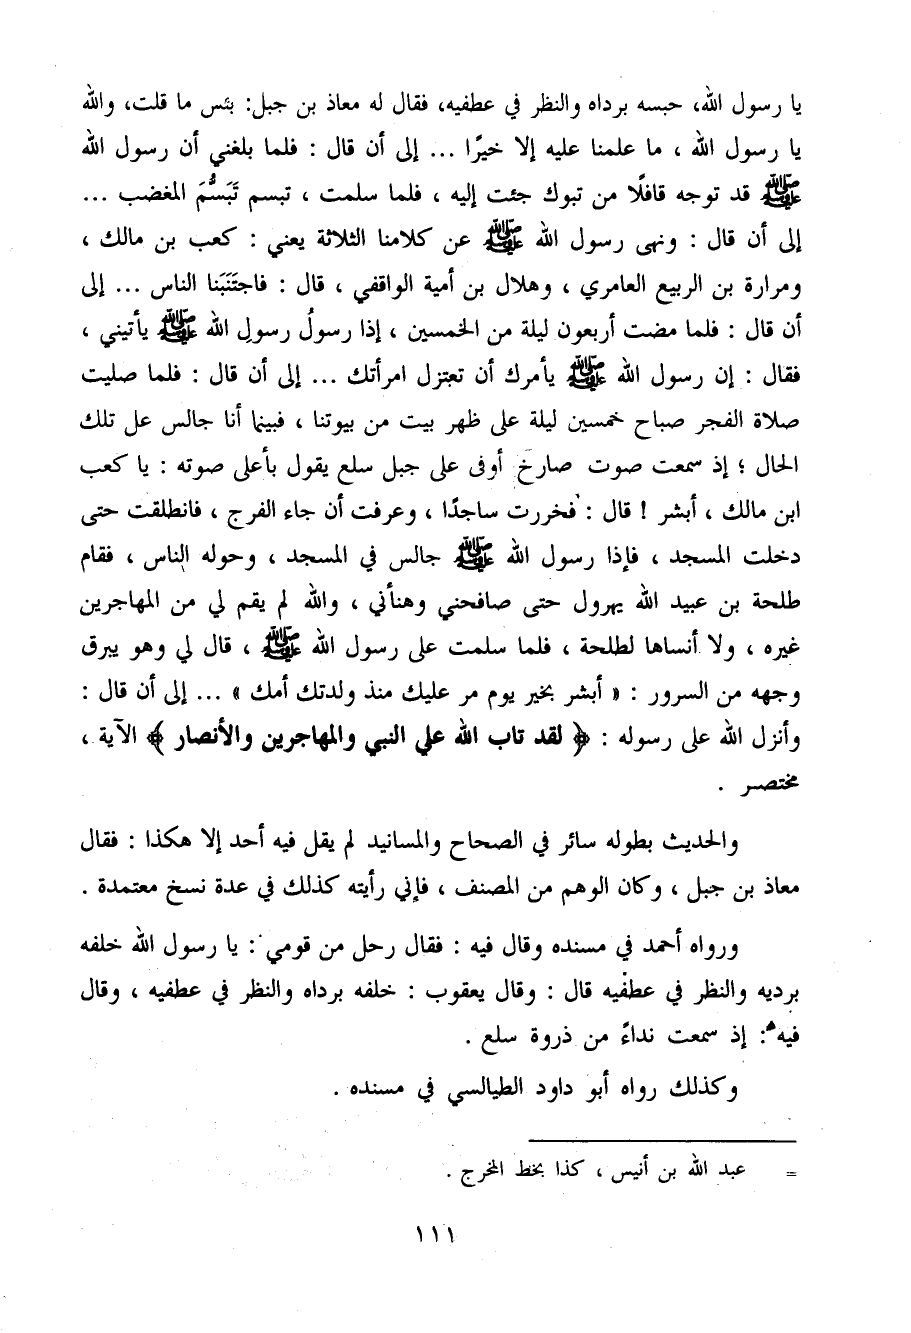 يا رسول الله، حبسه برداه والنظر في عطفيه، فقال له معاذ بن جبل: بئس ما قلت، والله
يا رسول الله ، ما علمنا عليه إلا خيرًا ... إلى أن قال : فلما بلغني أن رسول الله
ﷺ قد توجه قافلًا من تبوك جئت إليه ، فلما سلمت ، تبسم تَبَسُّمَ المغضب ...
إلى أن قال : ونهى رسول الله ﷺ عن كلامنا الثلاثة يعني : كعب بن مالك ،
ومرارة بن الربيع العامري ، وهلال بن أمية الواقفي ، قال : فاجتَنَبَنا الناس ... إلى
أن قال : فلما مضت أربعون ليلة من الخمسين ، إذا رسولُ رسولِ الله ﷺ يأتيني ،
فقال : إن رسول الله ﷺ يأمرك أن تعتزل امرأتك ... إلى أن قال : فلما صليت
صلاة الفجر صباح خمسين ليلة على ظهر بيت من بيوتنا ، فبينما أنا جالس عل تلك
الحال ؛ إذ سمعت صوت صارخ أوفى على جبل سلع يقول بأعلى صوته : يا كعب
ابن مالك ، أبشر ! قال : فخررت ساجدًا ، وعرفت أن جاء الفرج ، فانطلقت حتى
دخلت المسجد ، فإذا رسول الله ﷺ جالس في المسجد ، وحوله الناس ، فقام
طلحة بن عبيد الله يهرول حتى صافحني وهنأني ، والله لم يقم لي من المهاجرين
غيره ، ولا أنساها لطلحة ، فلما سلمت على رسول الله ﷺ ، قال لي وهو يبرق
وجهه من السرور : « أبشر بخير يوم مر عليك منذ ولدتك أمك » ... إلى أن قال :
وأنزل الله على رسوله : ﴿ لقد تاب الله علي النبي والمهاجرين والأنصار ﴾ الآية ،
مختصر .
والحديث بطوله سائر في الصحاح والمسانيد لم يقل فيه أحد إلا هكذا : فقال
معاذ بن جبل ، وكان الوهم من المصنف ، فإني رأيته كذلك في عدة نسخ معتمدة .
ورواه أحمد في مسنده وقال فيه : فقال رحل من قومي : يا رسول الله خلفه
برديه والنظر في عطفيه قال : وقال يعقوب : خلفه برداه والنظر في عطفيه ، وقال
فيه : إذ سمعت نداءً من ذروة سلع .
وكذلك رواه أبو داود الطيالسي في مسنده .
= عبد الله بن أنيس ، كذا بخط المخرج .
١١١